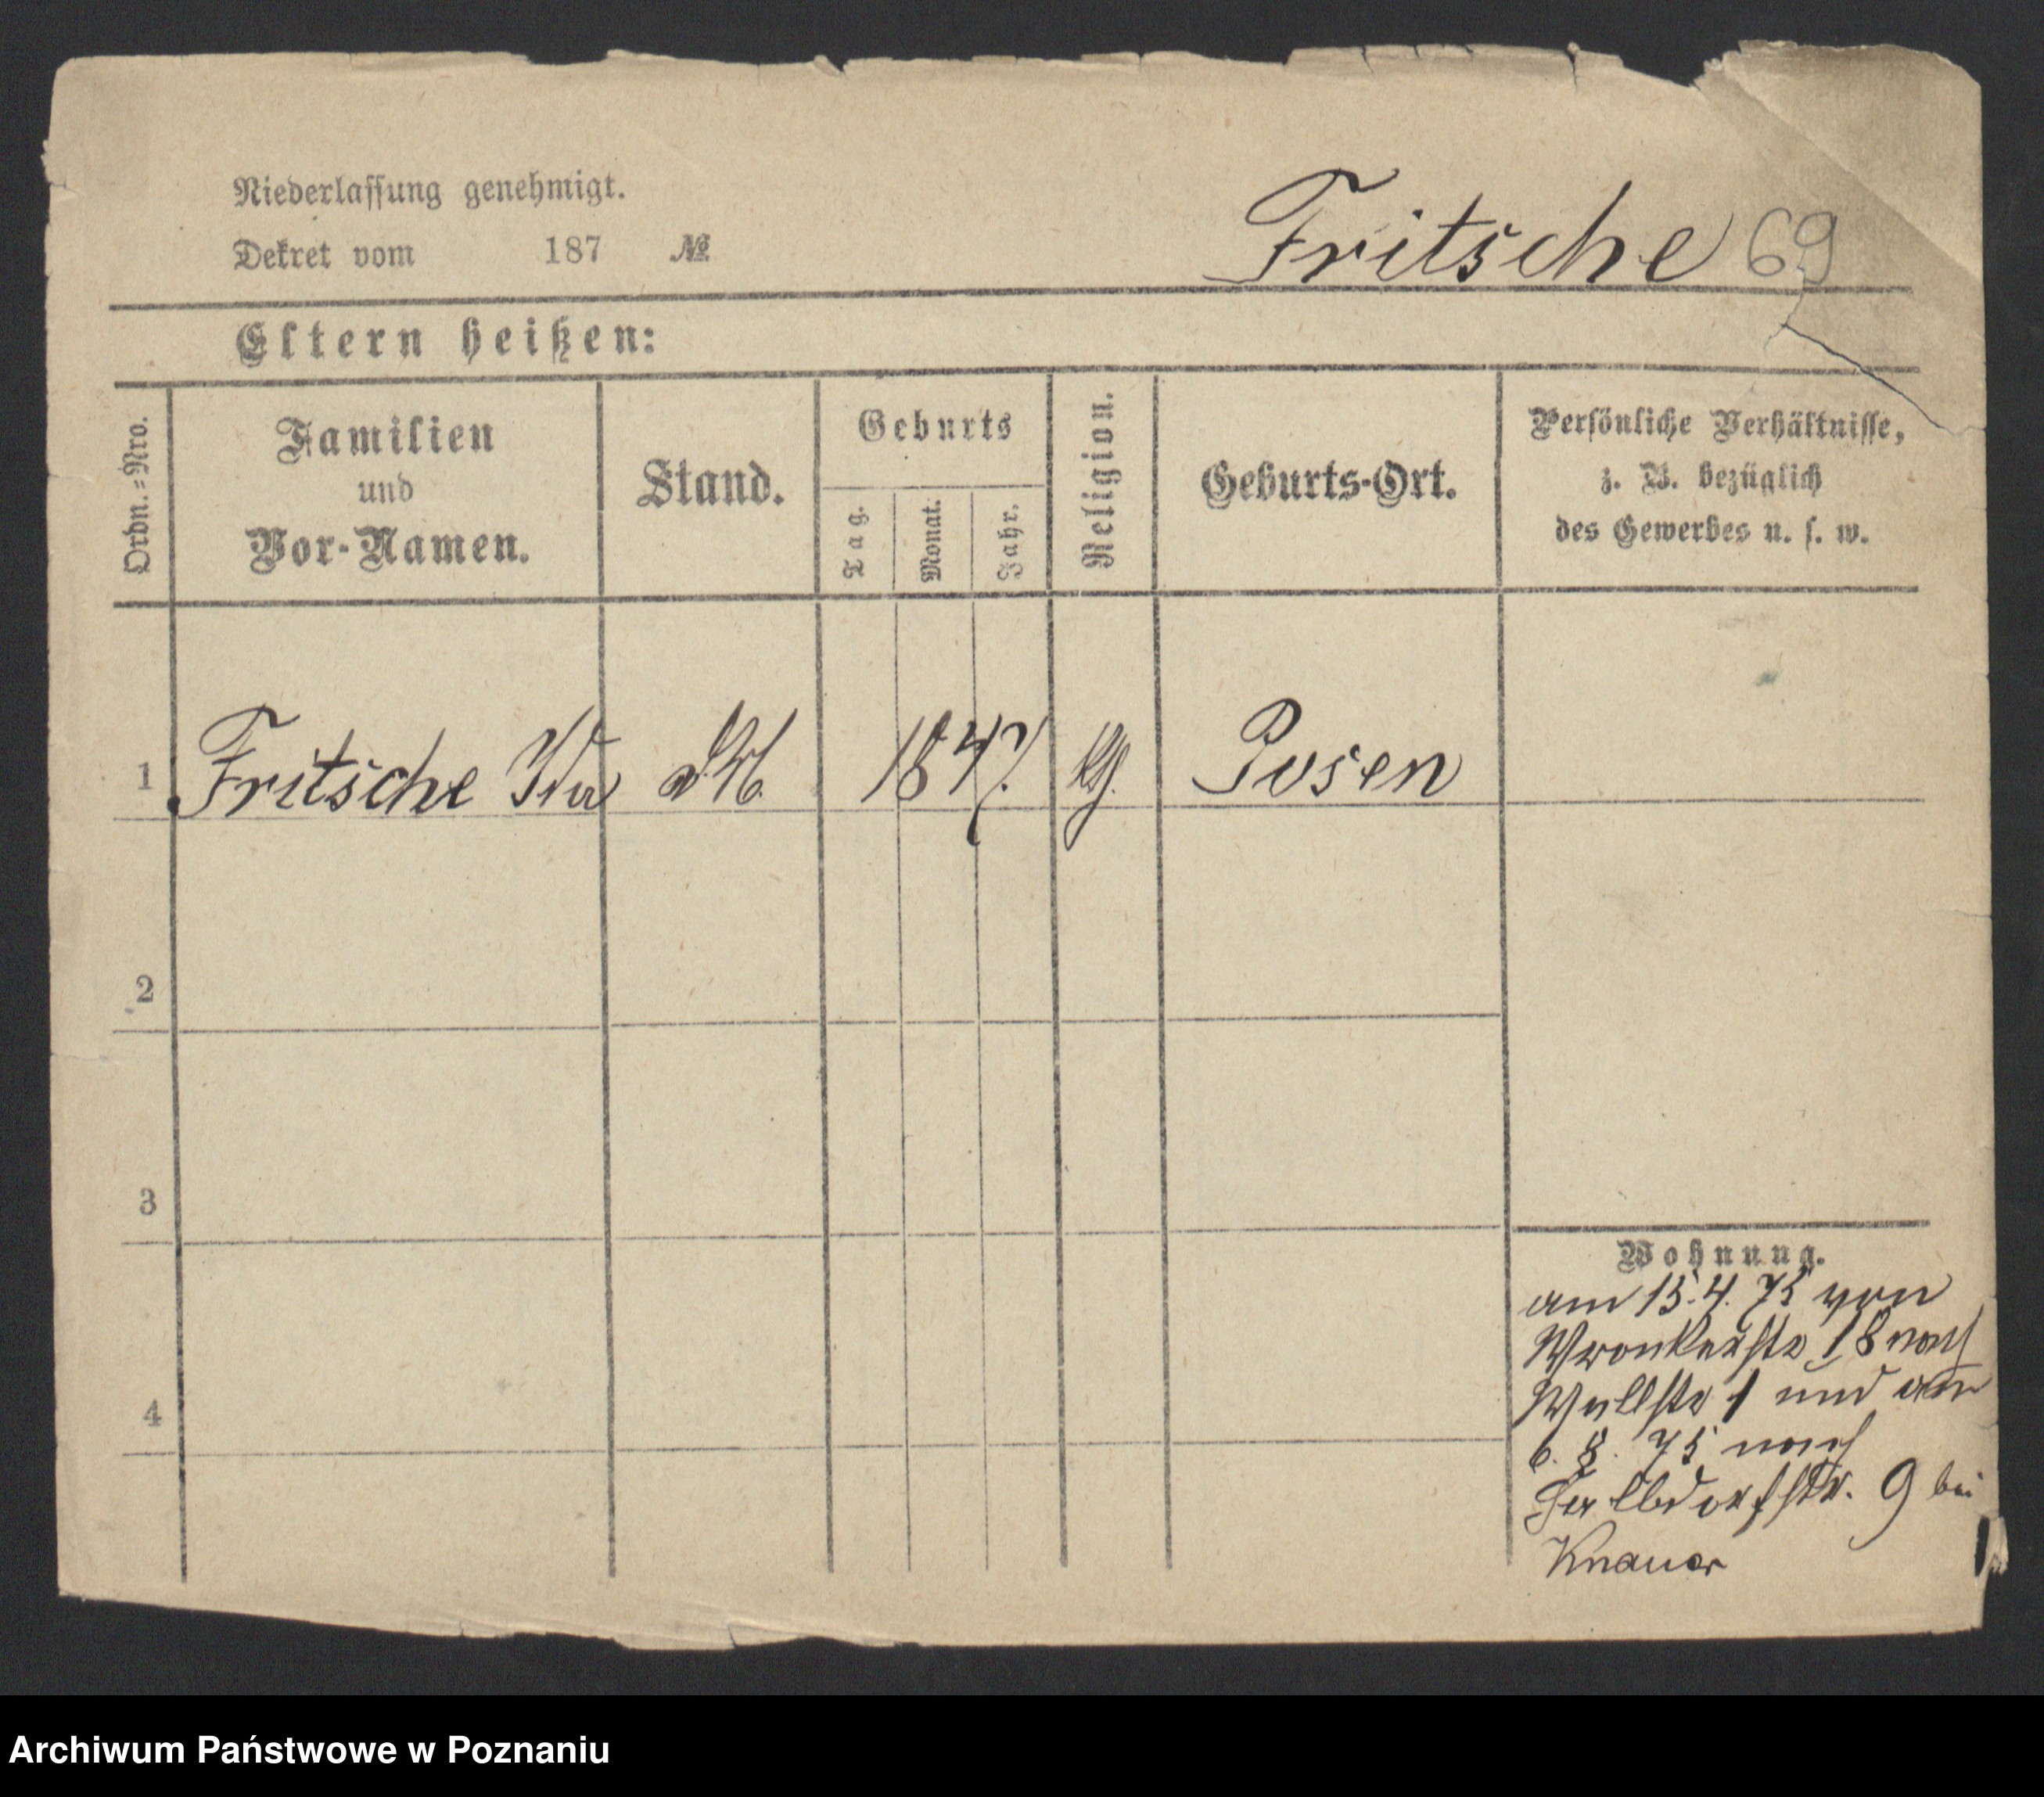 Niederlassung genehmigt.
Dekret vom 187 №
Fritsche 69
Eltern heißen:
Ordn.=Nro.
Familien
und
Vor-Namen.
Stand.
Geburts
Tag.
Monat.
Jahr.
Religion.
Geburts-Ort.
Persönliche Verhältnisse,
z. B. bezüglich
des Gewerbes u. s. w.
1 Fritsche Ida 1847. Posen
2
3
4
Wohnung.
am 15.4.75 von
Wronkerstr 18 nach
Wallstr 1 und am
6. 8. 75 nach
Halbdorfstr. 9 bei
Knauer
Archiwum Państwowe w Poznaniu